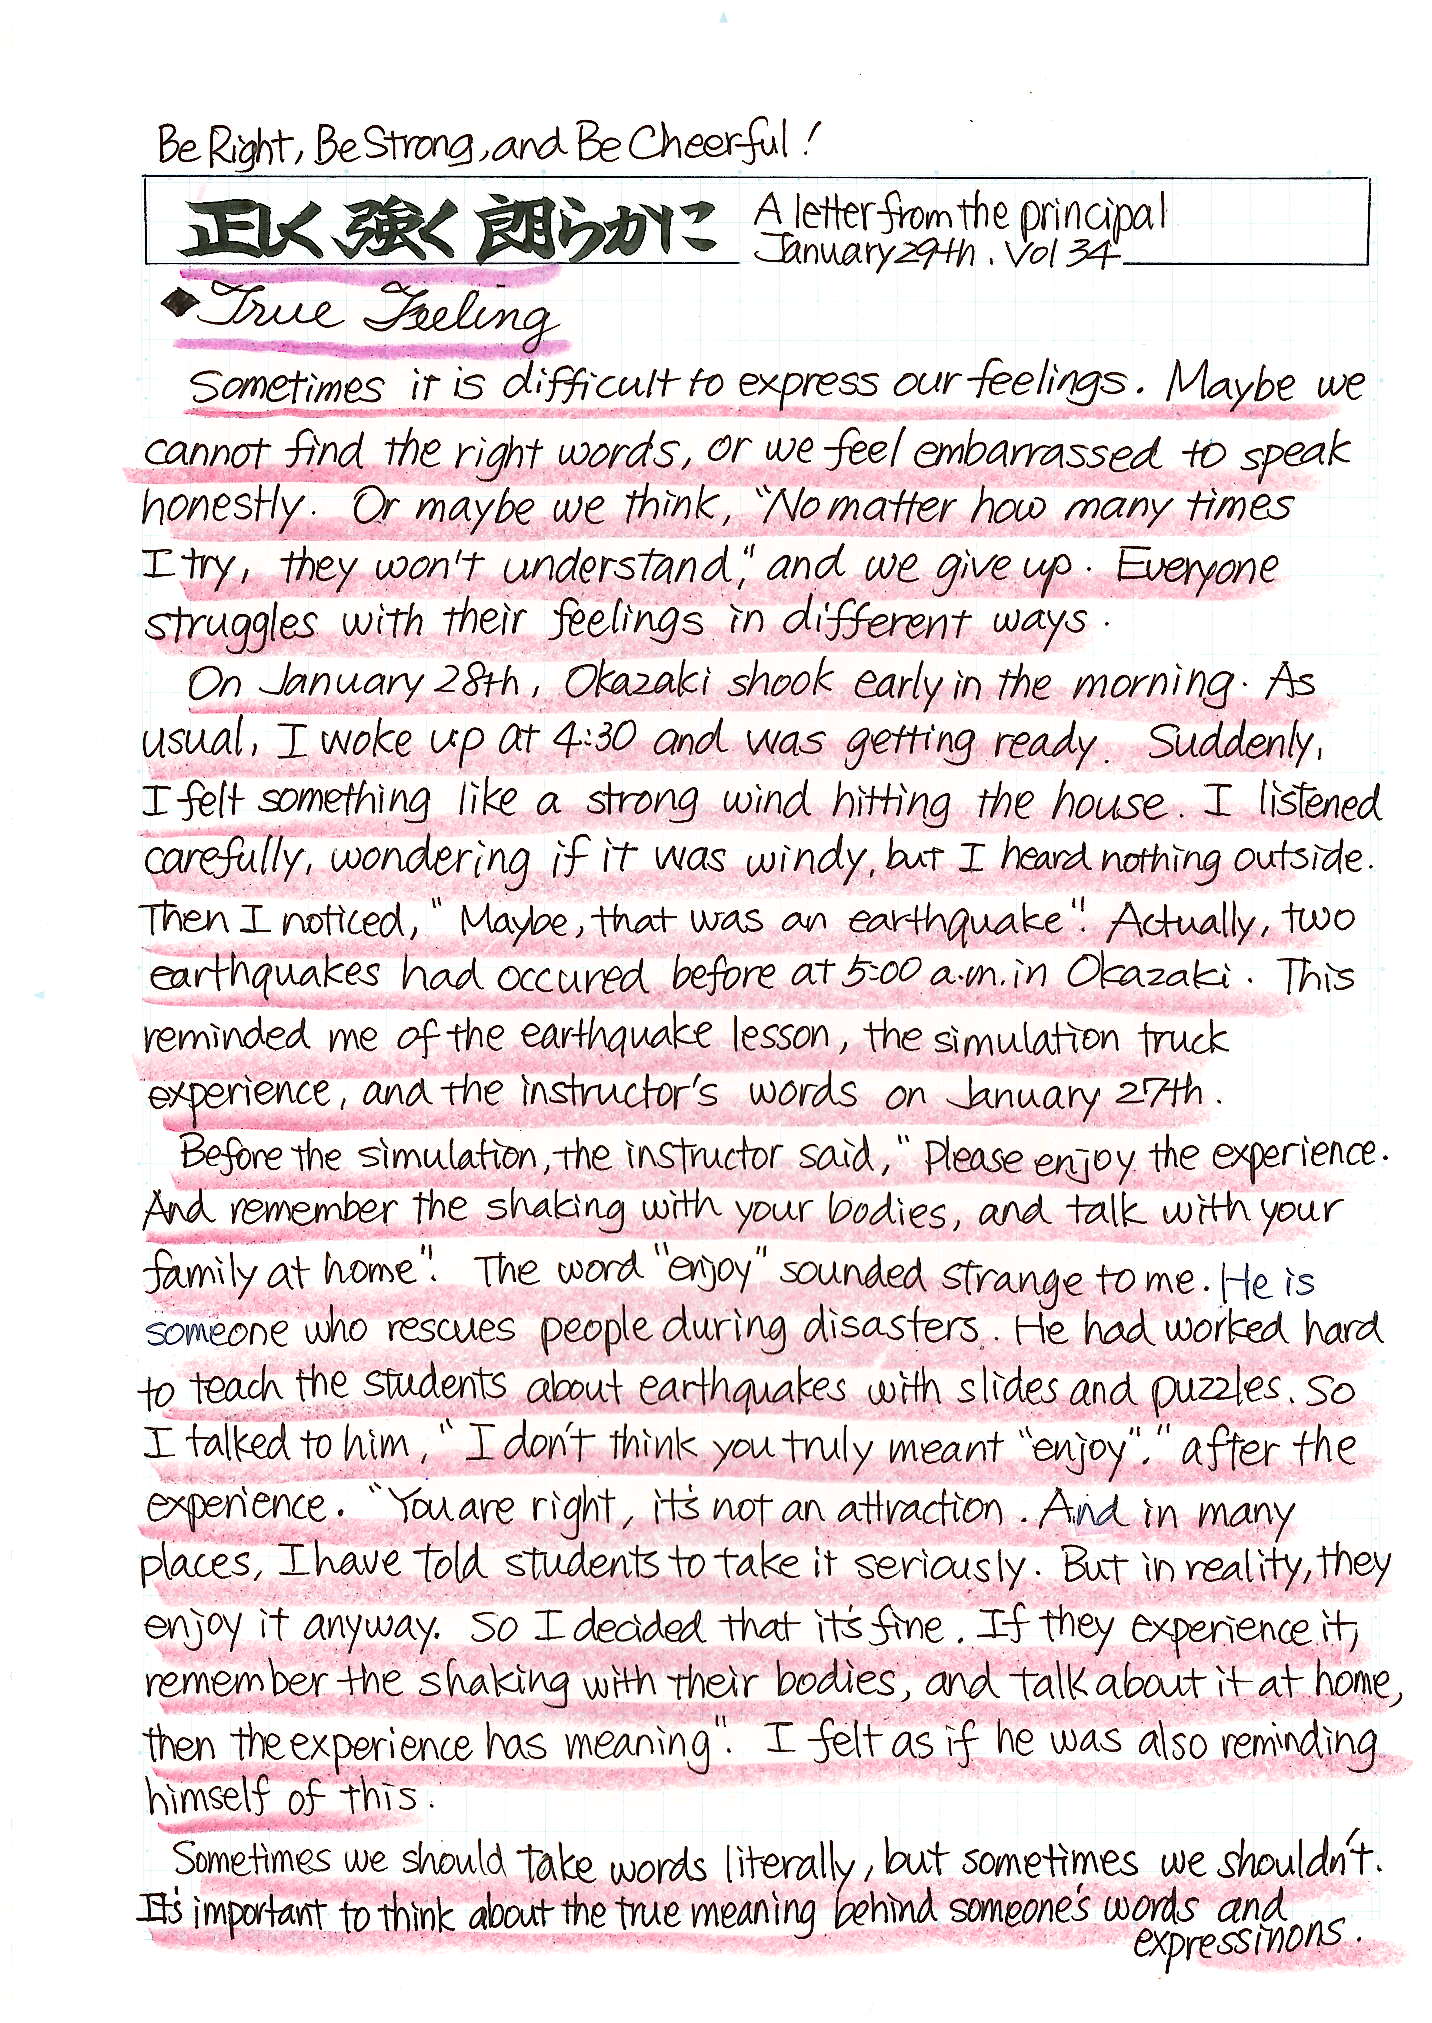 Be Right, Be Strong, and Be Cheerful!
正しく 強く 朗らかに
A letter from the principal
January 29th. Vol 34
◆True Feeling
Sometimes it is difficult to express our feelings. Maybe we
cannot find the right words, or we feel embarrassed to speak
honestly. Or maybe we think, "No matter how many times
I try, they won't understand," and we give up. Everyone
struggles with their feelings in different ways.
On January 28th, Okazaki shook early in the morning. As
usual, I woke up at 4:30 and was getting ready. Suddenly,
I felt something like a strong wind hitting the house. I listened
carefully, wondering if it was windy, but I heard nothing outside.
Then I noticed, "Maybe, that was an earthquake". Actually, two
earthquakes had occured before at 5:00 a.m. in Okazaki. This
reminded me of the earthquake lesson, the simulation truck
experience, and the instructor's words on January 27th.
Before the simulation, the instructor said, "Please enjoy the experience.
And remember the shaking with your bodies, and talk with your
family at home". The word "enjoy" sounded strange to me. He is
someone who rescues people during disasters. He had worked hard
to teach the students about earthquakes with slides and puzzles. So
I talked to him, "I don't think you truly meant "enjoy"." after the
experience. "You are right, it's not an attraction. And in many
places, I have told students to take it seriously. But in reality, they
enjoy it anyway. So I decided that it's fine. If they experience it,
remember the shaking with their bodies, and talk about it at home,
then the experience has meaning". I felt as if he was also reminding
himself of this.
Sometimes we should take words literally, but sometimes we shouldn't.
It's important to think about the true meaning behind someone's words and
expressinons.